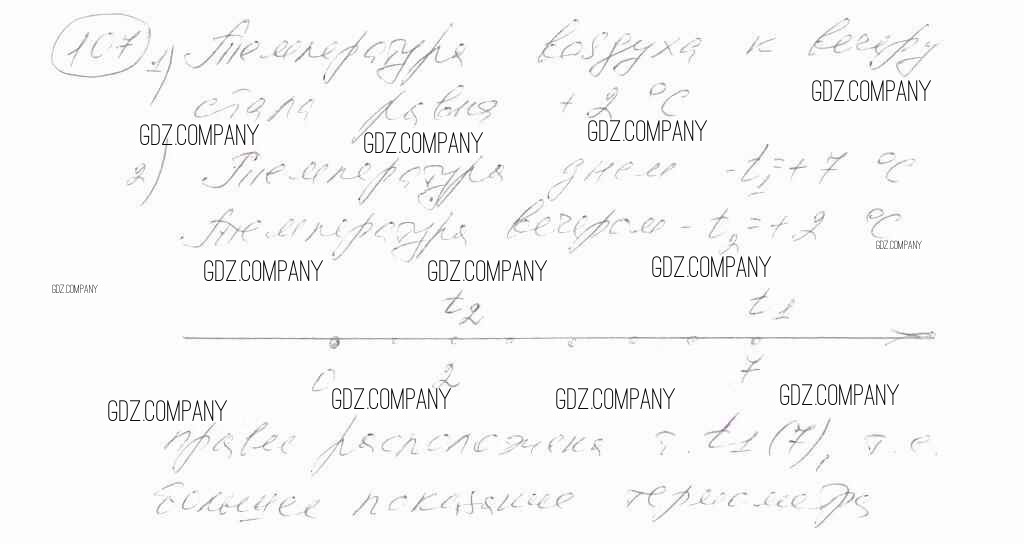 107 1) Температура воздуха к вечеру
GDZ.COMPANY
стала равна +2 °C
GDZ.COMPANY GDZ.COMPANY GDZ.COMPANY
2) Температура днем - t1=+7 °C
Температура вечером - t2=+2 °C
GDZ.COMPANY
GDZ.COMPANY GDZ.COMPANY GDZ.COMPANY
GDZ.COMPANY
t2 t1
0 2 7
GDZ.COMPANY GDZ.COMPANY GDZ.COMPANY GDZ.COMPANY
правее расположена т. t1(7), т.е.
большее показание термометра